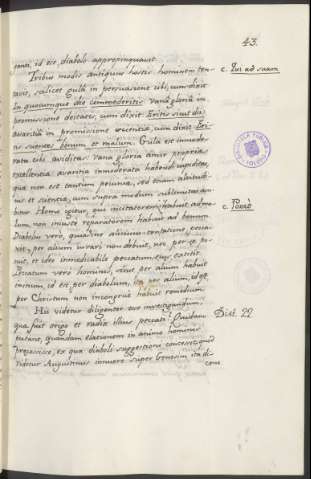 43.
geret, id est, diaboli appropinquavit.
Tribus modis antiquus hostis hominem ten-
c. Qui ad suam
tavit, scilicet gula in persuasione cibi, cum dixit
In quocumque die comederitis vana gloria in
promissione deitatis, cum dixit Eritis sicut dii
avaritia in promissione scientiae, cum dixit Eri-
tis scientes bonum et malum. Gula est immode-
rata cibi aviditas vana gloria amor propriae
excellentiae avaritia immoderata habendi cupiditas,
quae non est tantum pecuniae, sed etiam altitudi-
nis et scientiae, cum supra modum sublimitas am-
bitur. Homo igitur, qui incitatorem habuit ad ma-
c. Porrò
lum non iniuste reparatorem habuit ad bonum
Diabolus vero, quia sine alicuius tentatione pecca-
vit, per alium iuvari non debuit, nec per se po-
tuit, et ideo irremediabile peccatum eius extitit.
Peccatum vero hominis, sicut per alium habuit
initium, id est per diabolum, ita per alium, id est
per Christum non incongrue habuit remedium.
Hic videtur diligenter esse investigandum,
quae fuit origo et radix illius peccati? Quidam
Dist. 22
putant, quandam elationem in animo hominis
praecessisse, ex qua diaboli suggestioni consensit, quod
videtur Augustinus innuere super Genesim ita di-
cens